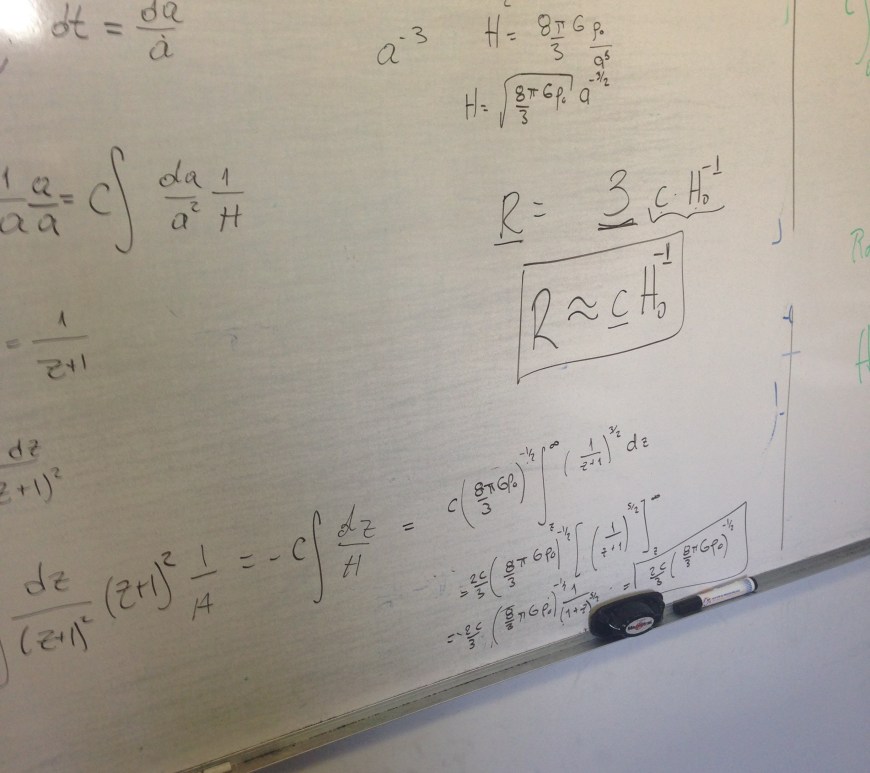 dt = da/ȧ
a⁻³
H² = 8π/3 G ρ₀/a³
H = √(8/3 πGρ₀) a^(-3/2)
1/a a/a = C∫ da/a² 1/H
R = 3 c H₀⁻¹
R ≈ c H₀⁻¹
= 1/(z+1)
dz/(z+1)²
dz/(z+1)² (z+1)² 1/H = - C∫ dz/H = c(8/3 πGρ₀)^(-1/2) ∫_z^∞ (1/(z+1))^(3/2) dz
= 2c/3 (8/3 πGρ₀)^(-1/2) [(1/(z+1))^(5/2)]_z^∞
= -2c/3 (8/3 πGρ₀)^(-1/2) 1/(1+z)^(5/2) = 2c/3 (8/3 πGρ₀)^(-1/2)